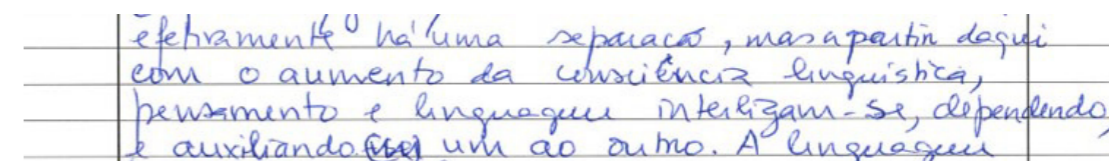 efetivamente há uma separacão, mas a partir daqui
com o aumento da consciência linguística,
pensamento e linguagem interligam-se, dependendo,
e auxiliando um ao outro. A linguagem